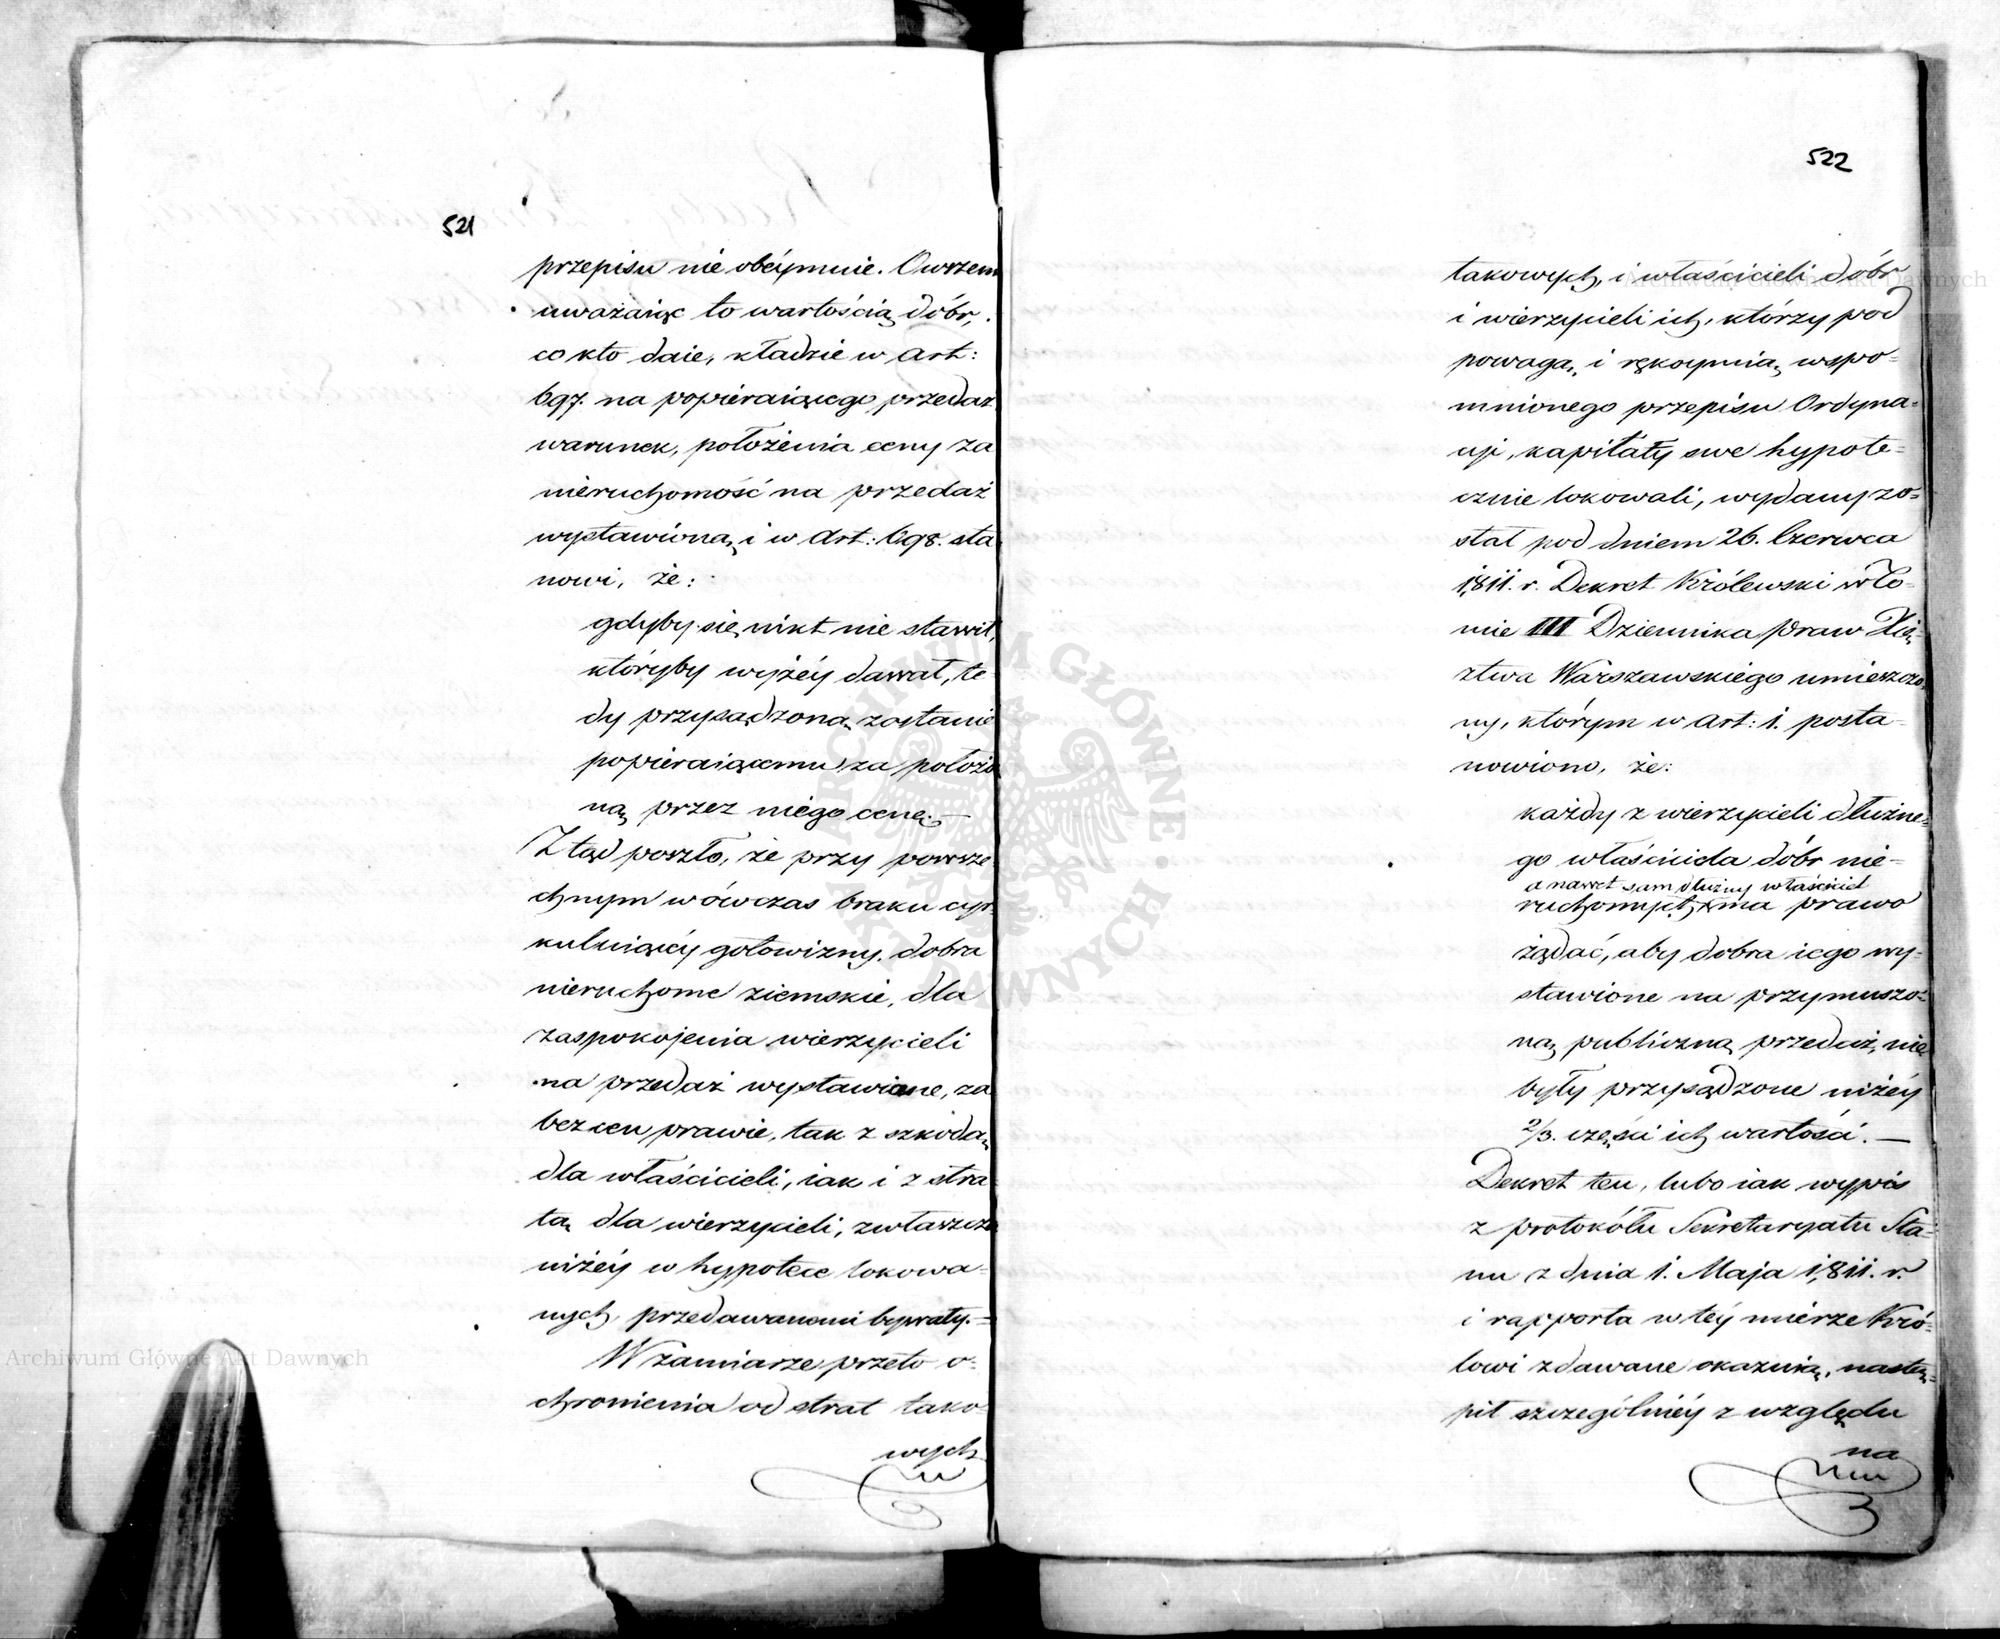 521
przepisu nie obéymuie. Owszem
uważaiąc to wartością dóbr,
co kto daie, kładzie w art:
697. na popieraiącego przedaż
warunek, położenia ceny za
nieruchomość na przedaż
wystawioną, i w Art: 698. sta
nowi, że:
gdyby się nikt nie stawił,
któryby wyżéy dawał, te
dy przysądzoną zostanie
popieraiącemu za położo
ną przez niego cenę. —
Ztąd poszło, że przy powsze
chnym wówczas braku cyr-
kuluiącéy gotowizny, dobra
nieruchome ziemskie, dla
zaspokojenia wierzycieli
na przedaż wystawione, za
bezcen prawie, tak z szkodą
dla właścicieli, iak i z stra
tą dla wierzycieli, zwłaszcza
niżéy w hypotece lokowa-
nych, przedawanemi bywały. =
W zamiarze przeto o-
chronienia od strat tako-
wych
522
takowych, i właścicieli dóbr
i wierzycieli ich, którzy pod
powagą, i rękoymią, wspo=
mnionego przepisu Ordyna=
cyi, kapitały swe hypote=
cznie lokowali, wydany zo=
stał pod dniem 26. Czerwca
1811. r. Dekret Królewski w To-
mie III Dziennika praw Xię-
ztwa Warszawskiego umieszczo-
ny, którym w art: 1. posta-
nowiono, że:
każdy z wierzycieli dłużne=
go właściciela dóbr nie-
a nawet sam dłużny właściciel
ruchomych, ma prawo
żądać, aby dobra iego wy-
stawione na przymuszo=
ną publiczną przedaż, nie
były przysądzone niżéy
2/3. części ich wartości. —
Dekret ten, lubo iak wypis
z protokółu Sekretaryatu Sta=
nu z dnia 1. Maja 1811. r.
i rapporta w téy mierze Kró-
lowi zdawane okazuią, nastę=
pił szczególniéy z względu
na
Archiwum Główne Akt Dawnych
Archiwum Główne Akt Dawnych
ARCHIWUM GŁÓWNE · AKT DAWNYCH ·